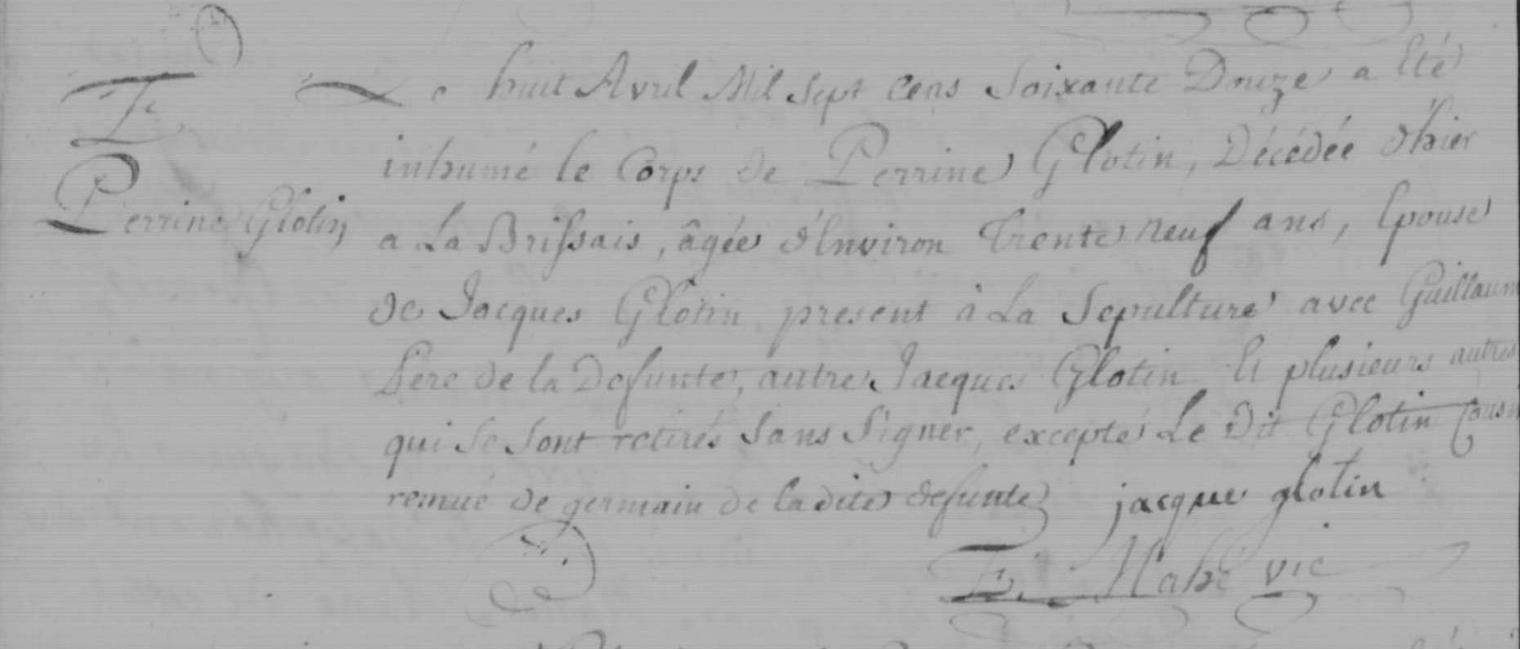 Le huit Avril Mil Sept Cens Soixante Douze a Eté
inhumé le Corps de Perrine Glotin, Décédée d'hier
Perrine Glotin
a La Brissais, âgée d'Environ Trente neuf ans, Epouse
de Jacques Glotin present à La Sepulture avec Guillaum
Pere de la Defunte, autre Jacques Glotin Et plusieurs autres
qui Se Sont retirés Sans Signer, excepté Le Dit Glotin Cousin
remué de germain de ladite defunte jacque glotin
Mahé vic